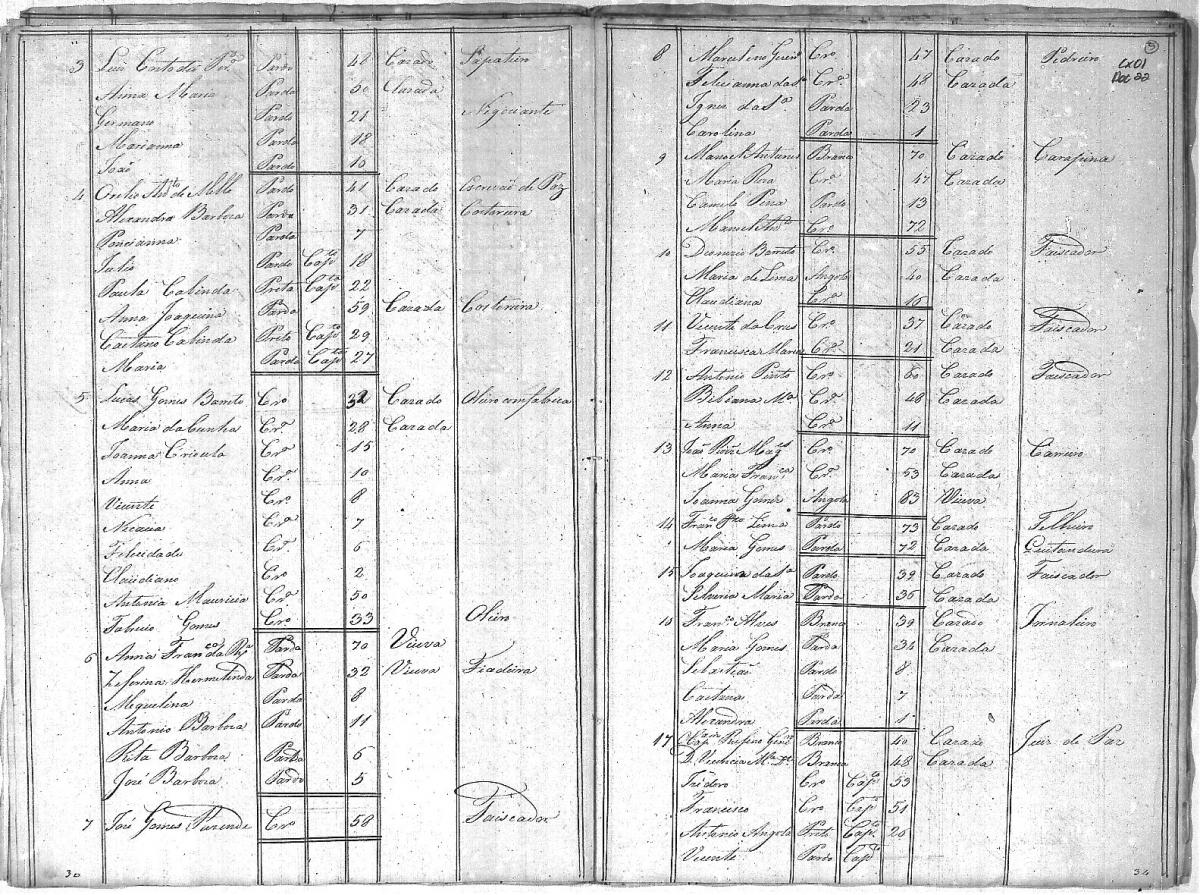 3 Luis Coelho da Pxº Pardo 48 Cazado Sapateiro
Anna Maria Parda 50 Cazada
Germano Pardo 21 Negociante
Marianna Parda 18
João Pardo 10
4 de Mello Pardo 41 Cazado Escrivaõ de Paz
Alexandra Barboza Parda 31 Cazada Costureira
Poncianna Parda 7
Julio Pardo Capto 18
Paula Cabinda Preta Capta 22
Anna Joaquina Parda 59 Cazada Costureira
Caetano Cabinda Preto Capto 29
Maria Parda Capta 27
5 Lucas Gomes Barreto Cro 32 Cazado Oleiro com fabrica
Maria da Cunha Cra 28 Cazada
Joanna Crioula Cra 15
Anna Cra 10
Vicente Cro 8
Nicacia Cra 7
Felicidade Cra 6
Claudiano Cro 2
Antonia Mauricia Cra 50
Fabricio Gomes Cro 33 Oleiro
6 Anna Franca da Parda 70 Viuva
Zeferina Hermelinda Parda 32 Viuva Fiadeira
Miquelina Parda 8
Antonio Barboza Pardo 11
Rita Barboza Parda 6
José Barboza Pardo 5
7 José Gomes Cro 58 Faiscador
30
3
Cx01
Doc 22
8 Marcelino Cro 47 Cazado Pedreiro
Felicianna da Sa Cra 48 Cazada
Ignez da Sa Parda 23
Carolina Parda 1
9 Manoel Antonio Branco 70 Cazado Carapina
Maria Roza Cra 47 Cazada
Camilo Pardo 13
Manoel Cro 72
10 Dionizio Barreto Cro 55 Cazado Faiscador
Maria de Lima Angola 40 Cazada
Claudiana Cra 16
11 Vicente da Crus Cro 37 Cazado Faiscador
Francisca Maria Cra 21 Cazada
12 Antonio Pinto Cro 80 Cazado Faiscador
Bibiana Ma Cra 48 Cazada
Anna Cra 11
13 Cro 70 Cazado Carreiro
Maria Franca Cra 53 Cazada
Joanna Gomes Angola 83 Viuva
14 Franco Lima Pardo 73 Cazado Telheiro
Maria Gomes Parda 72 Cazada Quitandeira
15 Joaquim da Sa Pardo 39 Cazado Faiscador
Silveria Maria Parda 36 Cazada
16 Franco Alves Branco 39 Cazado Jornaleiro
Maria Gomes Parda 34 Cazada
Sebastiaõ Pardo 8
Caetana Parda 7
Alexandra Parda 1
17 Capam Rufino Branco 40 Cazado Juiz de Paz
D. Vicencia Ma Branca 48 Cazada
Izidoro Cro Capto 53
Francisco Cro Capto 51
Antonio Angola Preto Capto 26
Vicente Pardo Capto